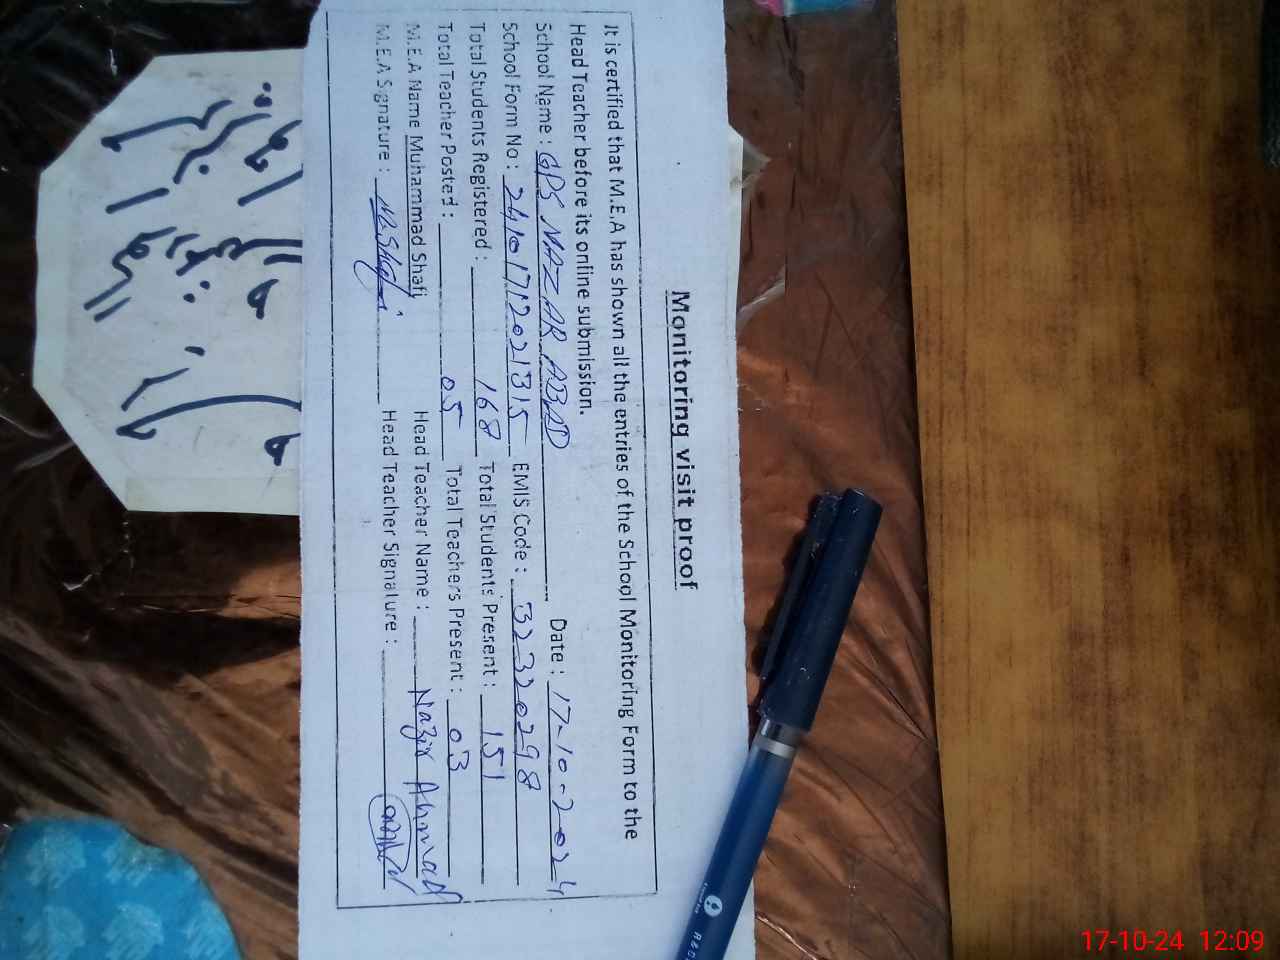 Monitoring visit proof
It is certified that M.E.A has shown all the entries of the School Monitoring Form to the
Head Teacher before its online submission.
School Name : GPS NAZAR ABAD Date : 17-10-2024
School Form No : 24101712021315 EMIS Code : 32320298
Total Students Registered : 168 Total Students Present : 151
Total Teacher Posted : 05 Total Teachers Present : 03
M.E.A Name Muhammad Shafi Head Teacher Name : Nazir Ahmad
M.E.A Signature : M.Shafi Head Teacher Signature :
17-10-24 12:09